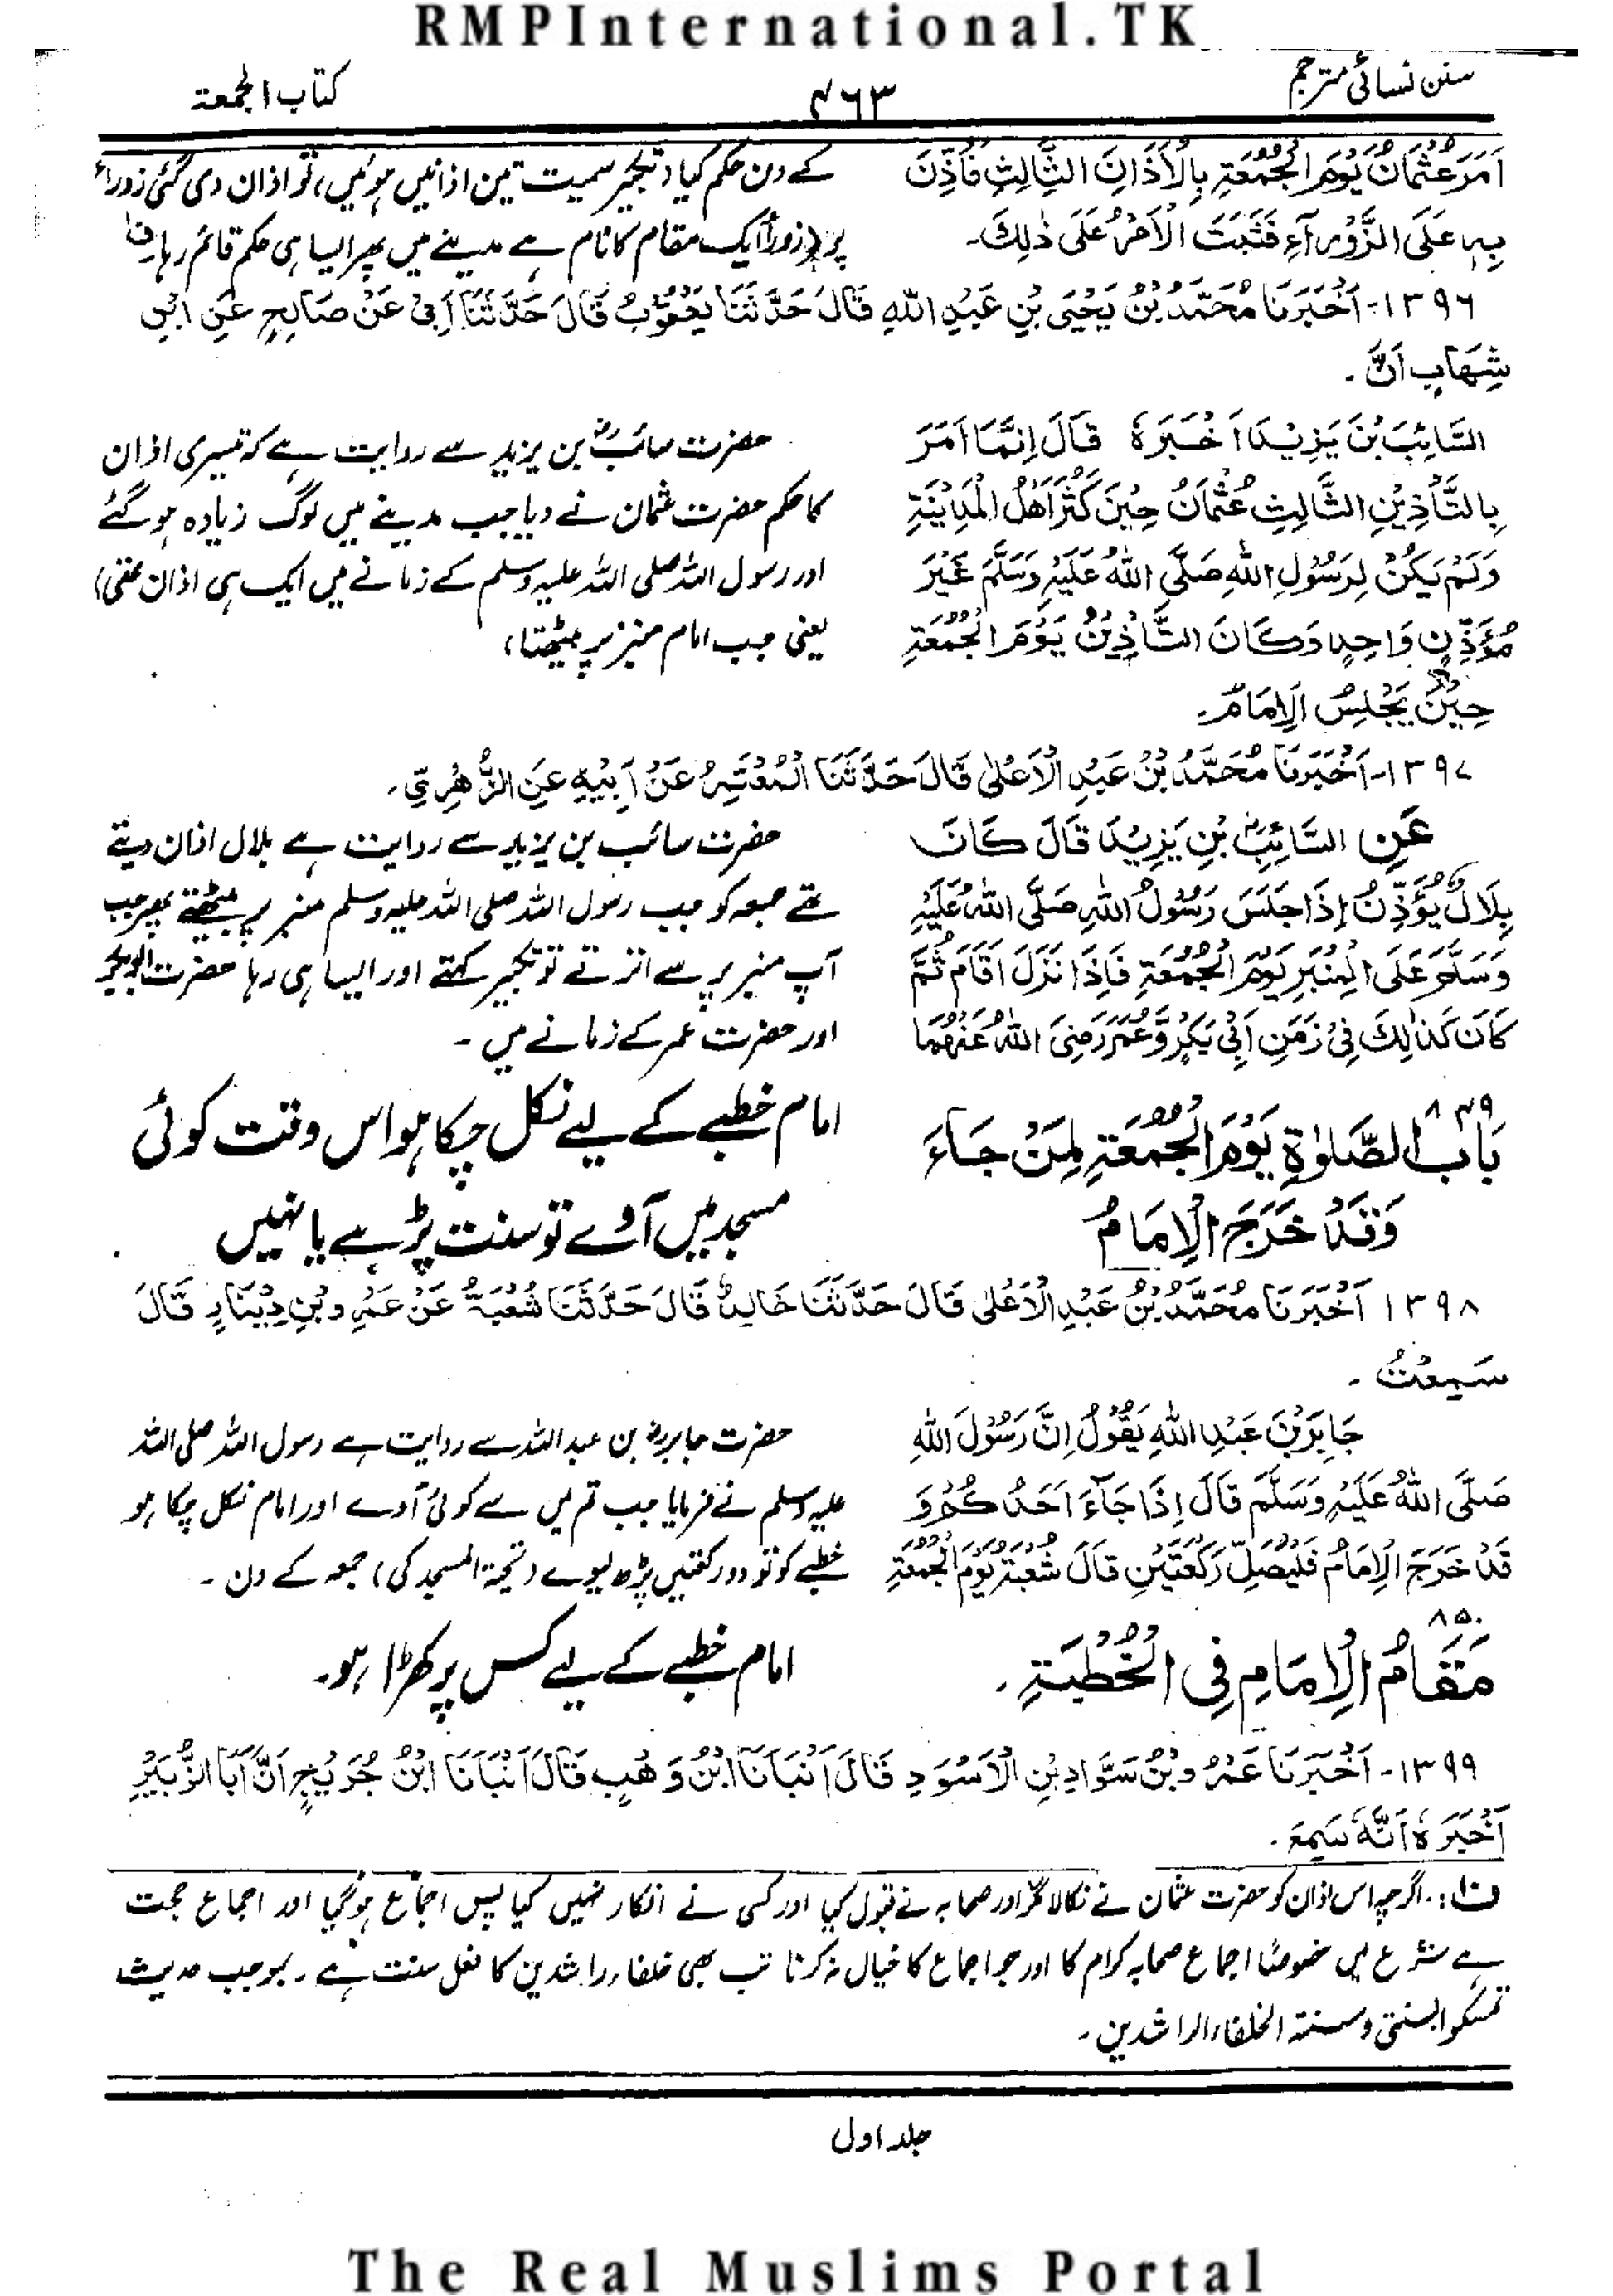 RMPInternational.TK
سنن نسائی مترجم
۴۶۳
کتاب الجمعۃ
اَمَرَ عُثْمَانُ یَوْمَ الْجُمُعَۃِ بِالْاَذَانِ الثَّالِثِ فَاُذِّنَ
بِہٖ عَلَی الزَّوْرَآءِ فَثَبَتَ الْاَمْرُ عَلٰی ذٰلِکَ۔
کے دن حکم کیا (تکبیر سمیت تین اذانیں ہوئیں، تو اذان دی گئی زوراء
پر (زوراء ایک مقام کا نام ہے مدینے میں پھر ایسا ہی حکم قائم رہا ف۱
۱۳۹۶- اَخْبَرَنَا مُحَمَّدُ بْنُ یَحْیَی بْنِ عَبْدِ اللّٰہِ قَالَ حَدَّثَنَا یَعْقُوْبُ قَالَ حَدَّثَنَا اَبِیْ عَنْ صَالِحٍ عَنِ ابْنِ
شِہَابٍ اَنَّ ۔
السَّائِبَ بْنَ یَزِیْدَ اَخْبَرَہٗ قَالَ اِنَّمَا اَمَرَ
بِالتَّاْذِیْنِ الثَّالِثِ عُثْمَانُ حِیْنَ کَثُرَ اَھْلُ الْمَدِیْنَۃِ
وَلَمْ یَکُنْ لِرَسُوْلِ اللّٰہِ صَلَّی اللّٰہُ عَلَیْہِ وَسَلَّمَ غَیْرَ
مُؤَذِّنٍ وَاحِدٍ وَکَانَ التَّاْذِیْنُ یَوْمَ الْجُمُعَۃِ
حِیْنَ یَجْلِسُ الْاِمَامُ۔
حضرت سائبؓ بن یزید سے روایت ہے کہ تیسری اذان
کا حکم حضرت عثمان نے دیا جب مدینے میں لوگ زیادہ ہو گئے
اور رسول اللہ صلی اللہ علیہ وسلم کے زمانے میں ایک ہی اذان تھی)
یعنی جب امام منبر پر بیٹھتا،
۱۳۹۷- اَخْبَرَنَا مُحَمَّدُ بْنُ عَبْدِ الْاَعْلٰی قَالَ حَدَّثَنَا الْمُعْتَمِرُ عَنْ اَبِیْہِ عَنِ الزُّھْرِیِّ۔
عَنِ السَّائِبِ بْنِ یَزِیْدَ قَالَ کَانَ
بِلَالٌ یُؤَذِّنُ اِذَا جَلَسَ رَسُوْلُ اللّٰہِ صَلَّی اللّٰہُ عَلَیْہِ
وَسَلَّمَ عَلَی الْمِنْبَرِ یَوْمَ الْجُمُعَۃِ فَاِذَا نَزَلَ اَقَامَ ثُمَّ
کَانَ کَذٰلِکَ فِیْ زَمَنِ اَبِیْ بَکْرٍ وَّعُمَرَ رَضِیَ اللّٰہُ عَنْہُمَا
حضرت سائب بن یزید سے روایت ہے بلال اذان دیتے
تھے جمعہ کو جب رسول اللہ صلی اللہ علیہ وسلم منبر پر بیٹھتے پھر جب
آپ منبر پر سے اترتے تو تکبیر کہتے اور ایسا ہی رہا حضرت ابوبکر
اور حضرت عمر کے زمانے میں ۔
۸۴۹
بَابُ الصَّلٰوۃِ یَوْمَ الْجُمُعَۃِ لِمَنْ جَاءَ
وَقَدْ خَرَجَ الْاِمَامُ
امام خطبے کے لیے نکل چکا ہو اس وقت کوئی
مسجد میں آوے تو سنت پڑھے یا نہیں
۱۳۹۸ اَخْبَرَنَا مُحَمَّدُ بْنُ عَبْدِ الْاَعْلٰی قَالَ حَدَّثَنَا خَالِدٌ قَالَ حَدَّثَنَا شُعْبَۃُ عَنْ عَمْرِو بْنِ دِیْنَارٍ قَالَ
سَمِعْتُ ۔
جَابِرَ بْنَ عَبْدِ اللّٰہِ یَقُوْلُ اِنَّ رَسُوْلَ اللّٰہِ
صَلَّی اللّٰہُ عَلَیْہِ وَسَلَّمَ قَالَ اِذَا جَآءَ اَحَدُکُمْ وَ
قَدْ خَرَجَ الْاِمَامُ فَلْیُصَلِّ رَکْعَتَیْنِ قَالَ شُعْبَۃُ یَوْمَ الْجُمُعَۃِ
حضرت جابرؓ بن عبد اللہ سے روایت ہے رسول اللہ صلی اللہ
علیہ وسلم نے فرمایا جب تم میں سے کوئی آوے اور امام نکل چکا ہو
خطبے کو تو دو رکعتیں پڑھ لیوے (تحیۃ المسجد کی) جمعہ کے دن ۔
۸۵۰
مَقَامُ الْاِمَامِ فِی الْخُطْبَۃِ ۔
امام خطبے کے لیے کس پر کھڑا ہو۔
۱۳۹۹- اَخْبَرَنَا عَمْرُو بْنُ سَوَّادِ بْنِ الْاَسْوَدِ قَالَ اَنْبَاَنَا ابْنُ وَھْبٍ قَالَ اَنْبَاَنَا ابْنُ جُرَیْجٍ اَنَّ اَبَا الزُّبَیْرِ
اَخْبَرَہٗ اَنَّہٗ سَمِعَ ۔
ف۱:۔ اگرچہ اس اذان کو حضرت عثمان نے نکالا مگر اور صحابہ نے قبول کیا اور کسی نے انکار نہیں کیا پس اجماع ہو گیا اور اجماع حجت
ہے شرع میں خصوصًا اجماع صحابہ کرام کا اور جو اجماع کا خیال نہ کرنا تب بھی خلفاء راشدین کا فعل سنت ہے ۔ بموجب حدیث
تمسکوا بسنتی وسنۃ الخلفاء الراشدین ۔
جلد اول
The Real Muslims Portal